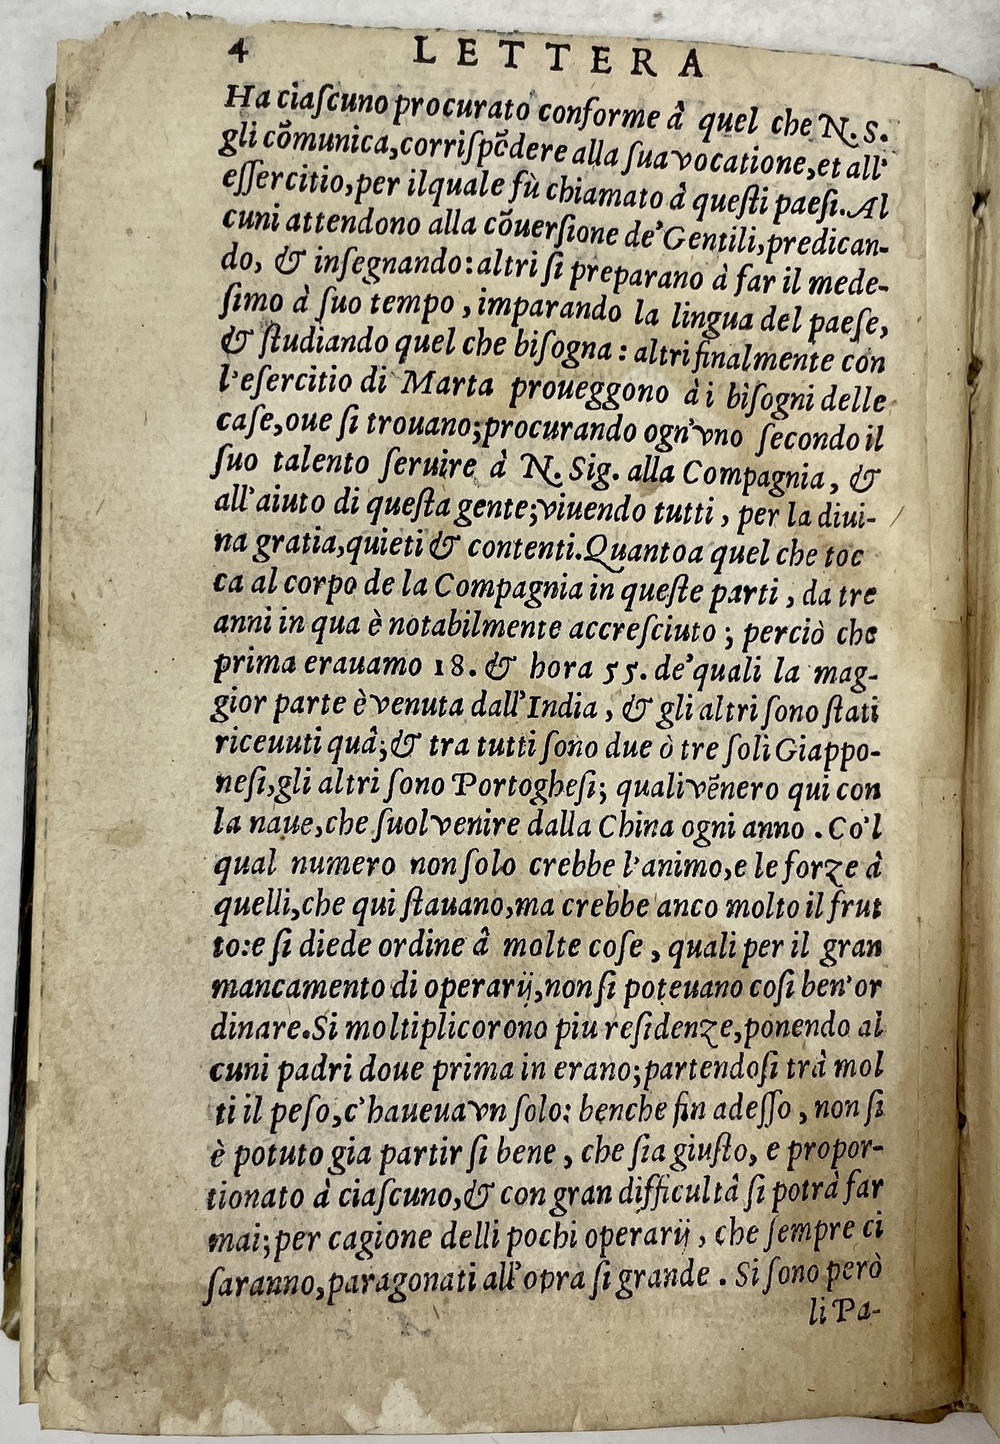 4 LETTERA
Ha ciaſcuno procurato conforme â quel che N. S.
gli cõmunica, corriſpõdere alla ſua vocatione, et all'
eſſercitio, per ilquale fù chiamato â queſti paeſi. Al
cuni attendono alla cõuerſione de' Gentili, predican-
do, & inſegnando: altri ſi preparano à far il mede-
ſimo à ſuo tempo, imparando la lingua del paeſe,
& ſtudiando quel che biſogna: altri finalmente con
l'eſercitio di Marta proueggono à i biſogni delle
caſe, oue ſi trouano; procurando ogn'vno ſecondo il
ſuo talento ſeruire à N. Sig. alla Compagnia, &
all'aiuto di queſta gente; viuendo tutti, per la diui-
na gratia, quieti & contenti. Quanto a quel che toc
ca al corpo de la Compagnia in queſte parti, da tre
anni in qua è notabilmente accreſciuto; perciò che
prima erauamo 18. & hora 55. de' quali la mag-
gior parte è venuta dall'India, & gli altri ſono ſtati
riceuuti quâ; & tra tutti ſono due ò tre ſoli Giappo-
neſi, gli altri ſono Portogheſi; quali vẽnero qui con
la naue, che ſuol venire dalla China ogni anno. Co'l
qual numero non ſolo crebbe l'animo, e le forze à
quelli, che qui ſtauano, ma crebbe anco molto il frut
to: e ſi diede ordine â molte coſe, quali per il gran
mancamento di operarij, non ſi poteuano coſi ben' or
dinare. Si moltiplicorono piu reſidenze, ponendo al
cuni padri doue prima in erano; partendoſi trà mol
ti il peſo, c'haueua vn ſolo: benche fin adeſſo, non ſi
è potuto gia partir ſi bene, che ſia giuſto, e propor-
tionato à ciaſcuno, & con gran difficultâ ſi potrà far
mai; per cagione delli pochi operarij, che ſempre ci
ſaranno, paragonati all'opra ſi grande. Si ſono però
li Pa-